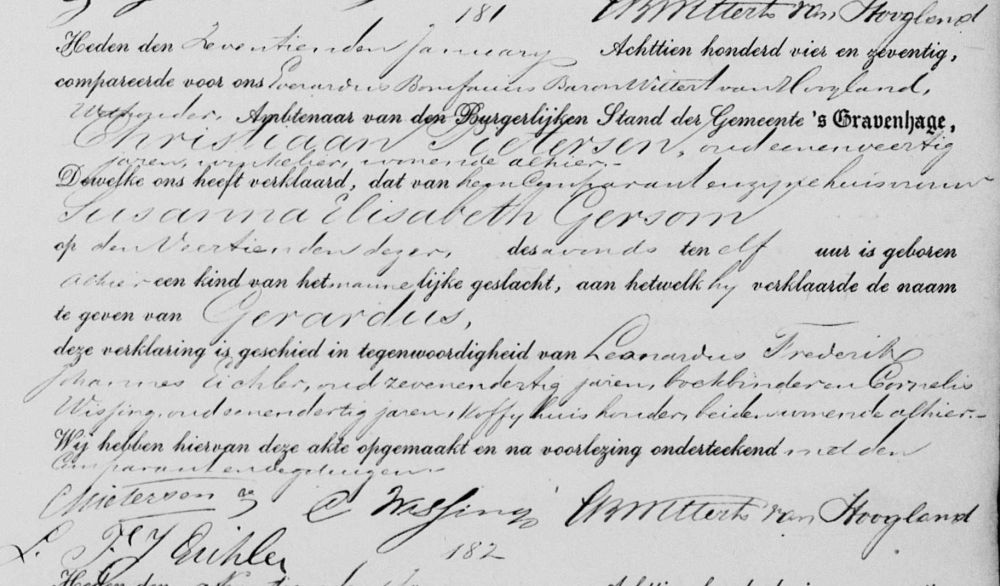 181 van Hoogland
Heden den Zeventienden January Achttien honderd vier en zeventig,
compareerde voor ons Everardus Bonifacius Baron Wittert van Hoogland,
Wethouder, Ambtenaar van den Burgerlijken Stand der Gemeente 's Gravenhage,
Christiaan Pietersen, oud eenenveertig
jaren, winkelier, wonende alhier.-
Dewelke ons heeft verklaard, dat van hem Comparant en zyne huisvrouw
Susanna Elisabeth Gersom
op den Veertienden dezer, des avonds ten elf uur is geboren
alhier een kind van het mannelijke geslacht, aan hetwelk hy verklaarde de naam
te geven van Gerardus,
deze verklaring is geschied in tegenwoordigheid van Leonardus Frederik
Johannes Eichler, oud zevenendertig jaren, boekbinder en Cornelis
Wissing, oud eenendertig jaren, Koffyhuishouder, beiden wonende alhier.-
Wij hebben hiervan deze akte opgemaakt en na voorlezing onderteekend met den
Comparant en de getuigen.
C Pietersen C Wissing van Hoogland
L. F. J Eichler 182
Heden den Achttien honderd